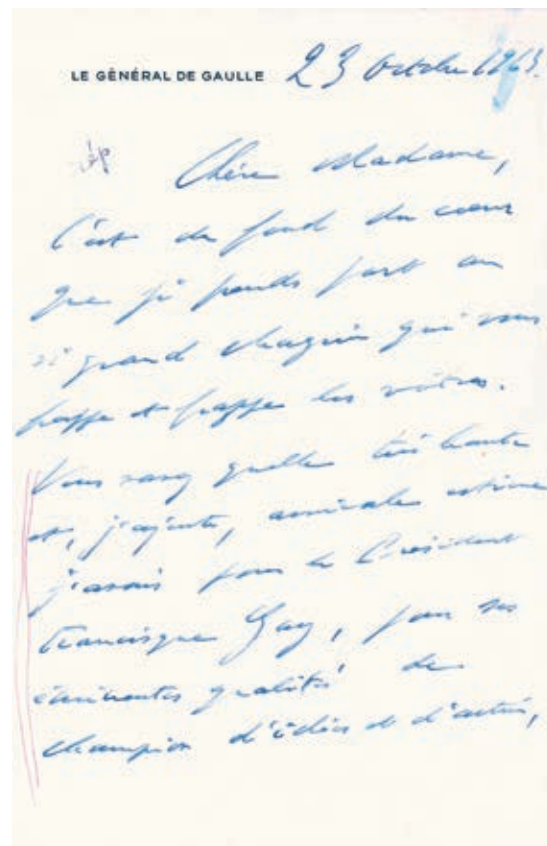 LE GÉNÉRAL DE GAULLE 23 octobre 1963.
Chère Madame,
C'est du fond du cœur
que je prends part au
si grand chagrin qui vous
frappe et frappe les vôtres.
Vous savez quelle très haute
et, j'ajoute, amicale estime
j'avais pour le Président
Francisque Gay, pour ses
éminentes qualités de
champion d'idées et d'action,